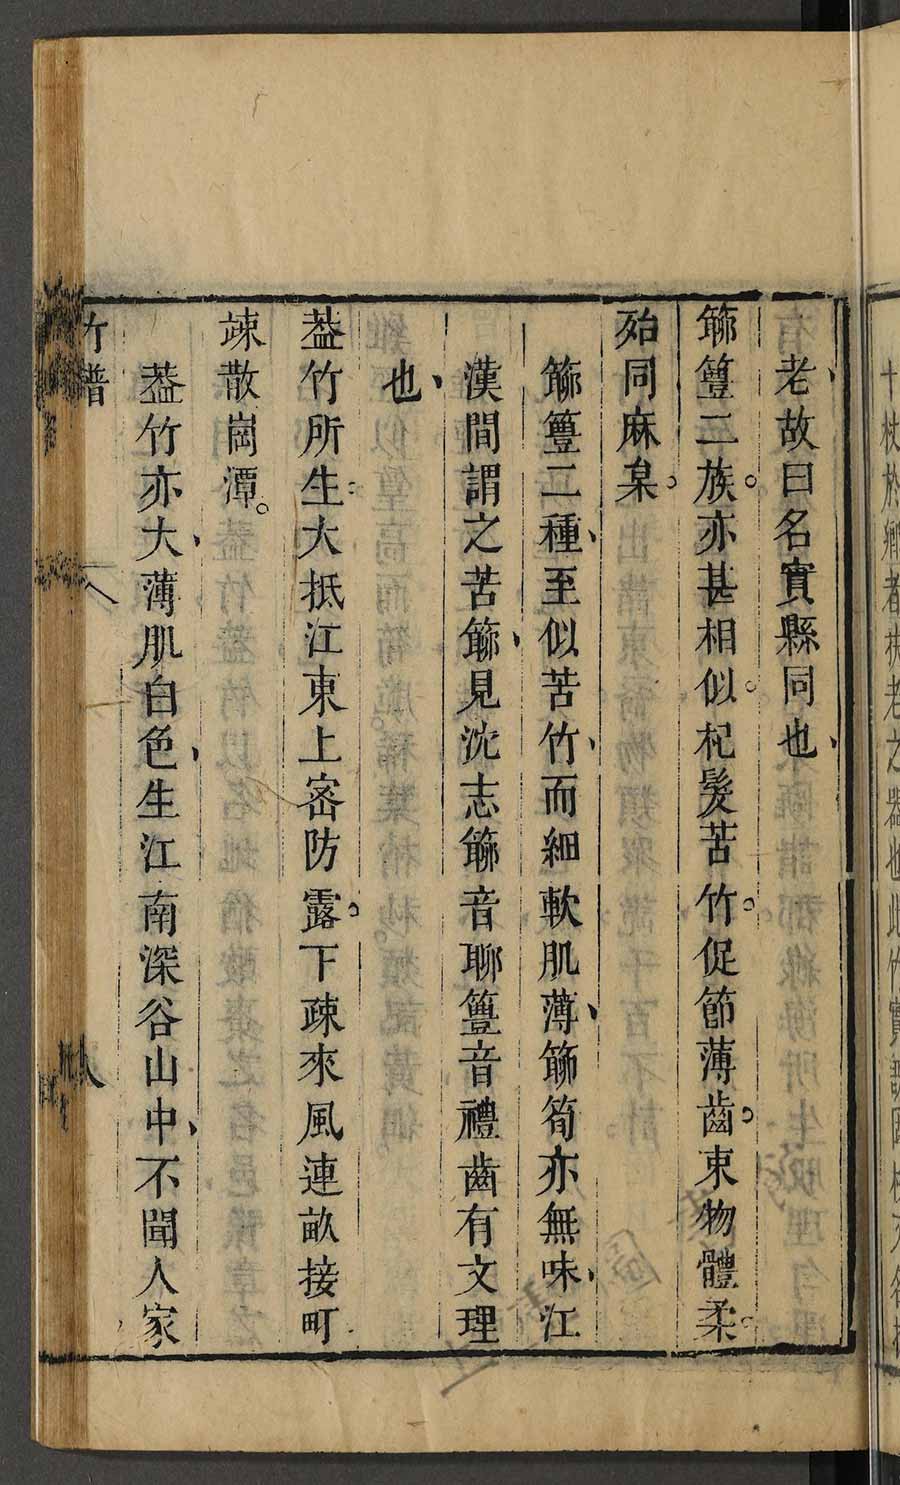 老故曰名實縣同也
䉶䉠二族亦甚相似杞髮苦竹促節薄齒束物體柔
殆同麻枲
䉶䉠二種至似苦竹而細軟肌薄䉶筍亦無味江
漢間謂之苦䉶見沈志䉶音聊䉠音禮齒有文理
也
葢竹所生大抵江東上密防露下疎來風連畝接町
竦散崗潭
葢竹亦大薄肌白色生江南深谷山中不聞人家
竹譜
八
十杖於鄉者扶老之器也此竹實